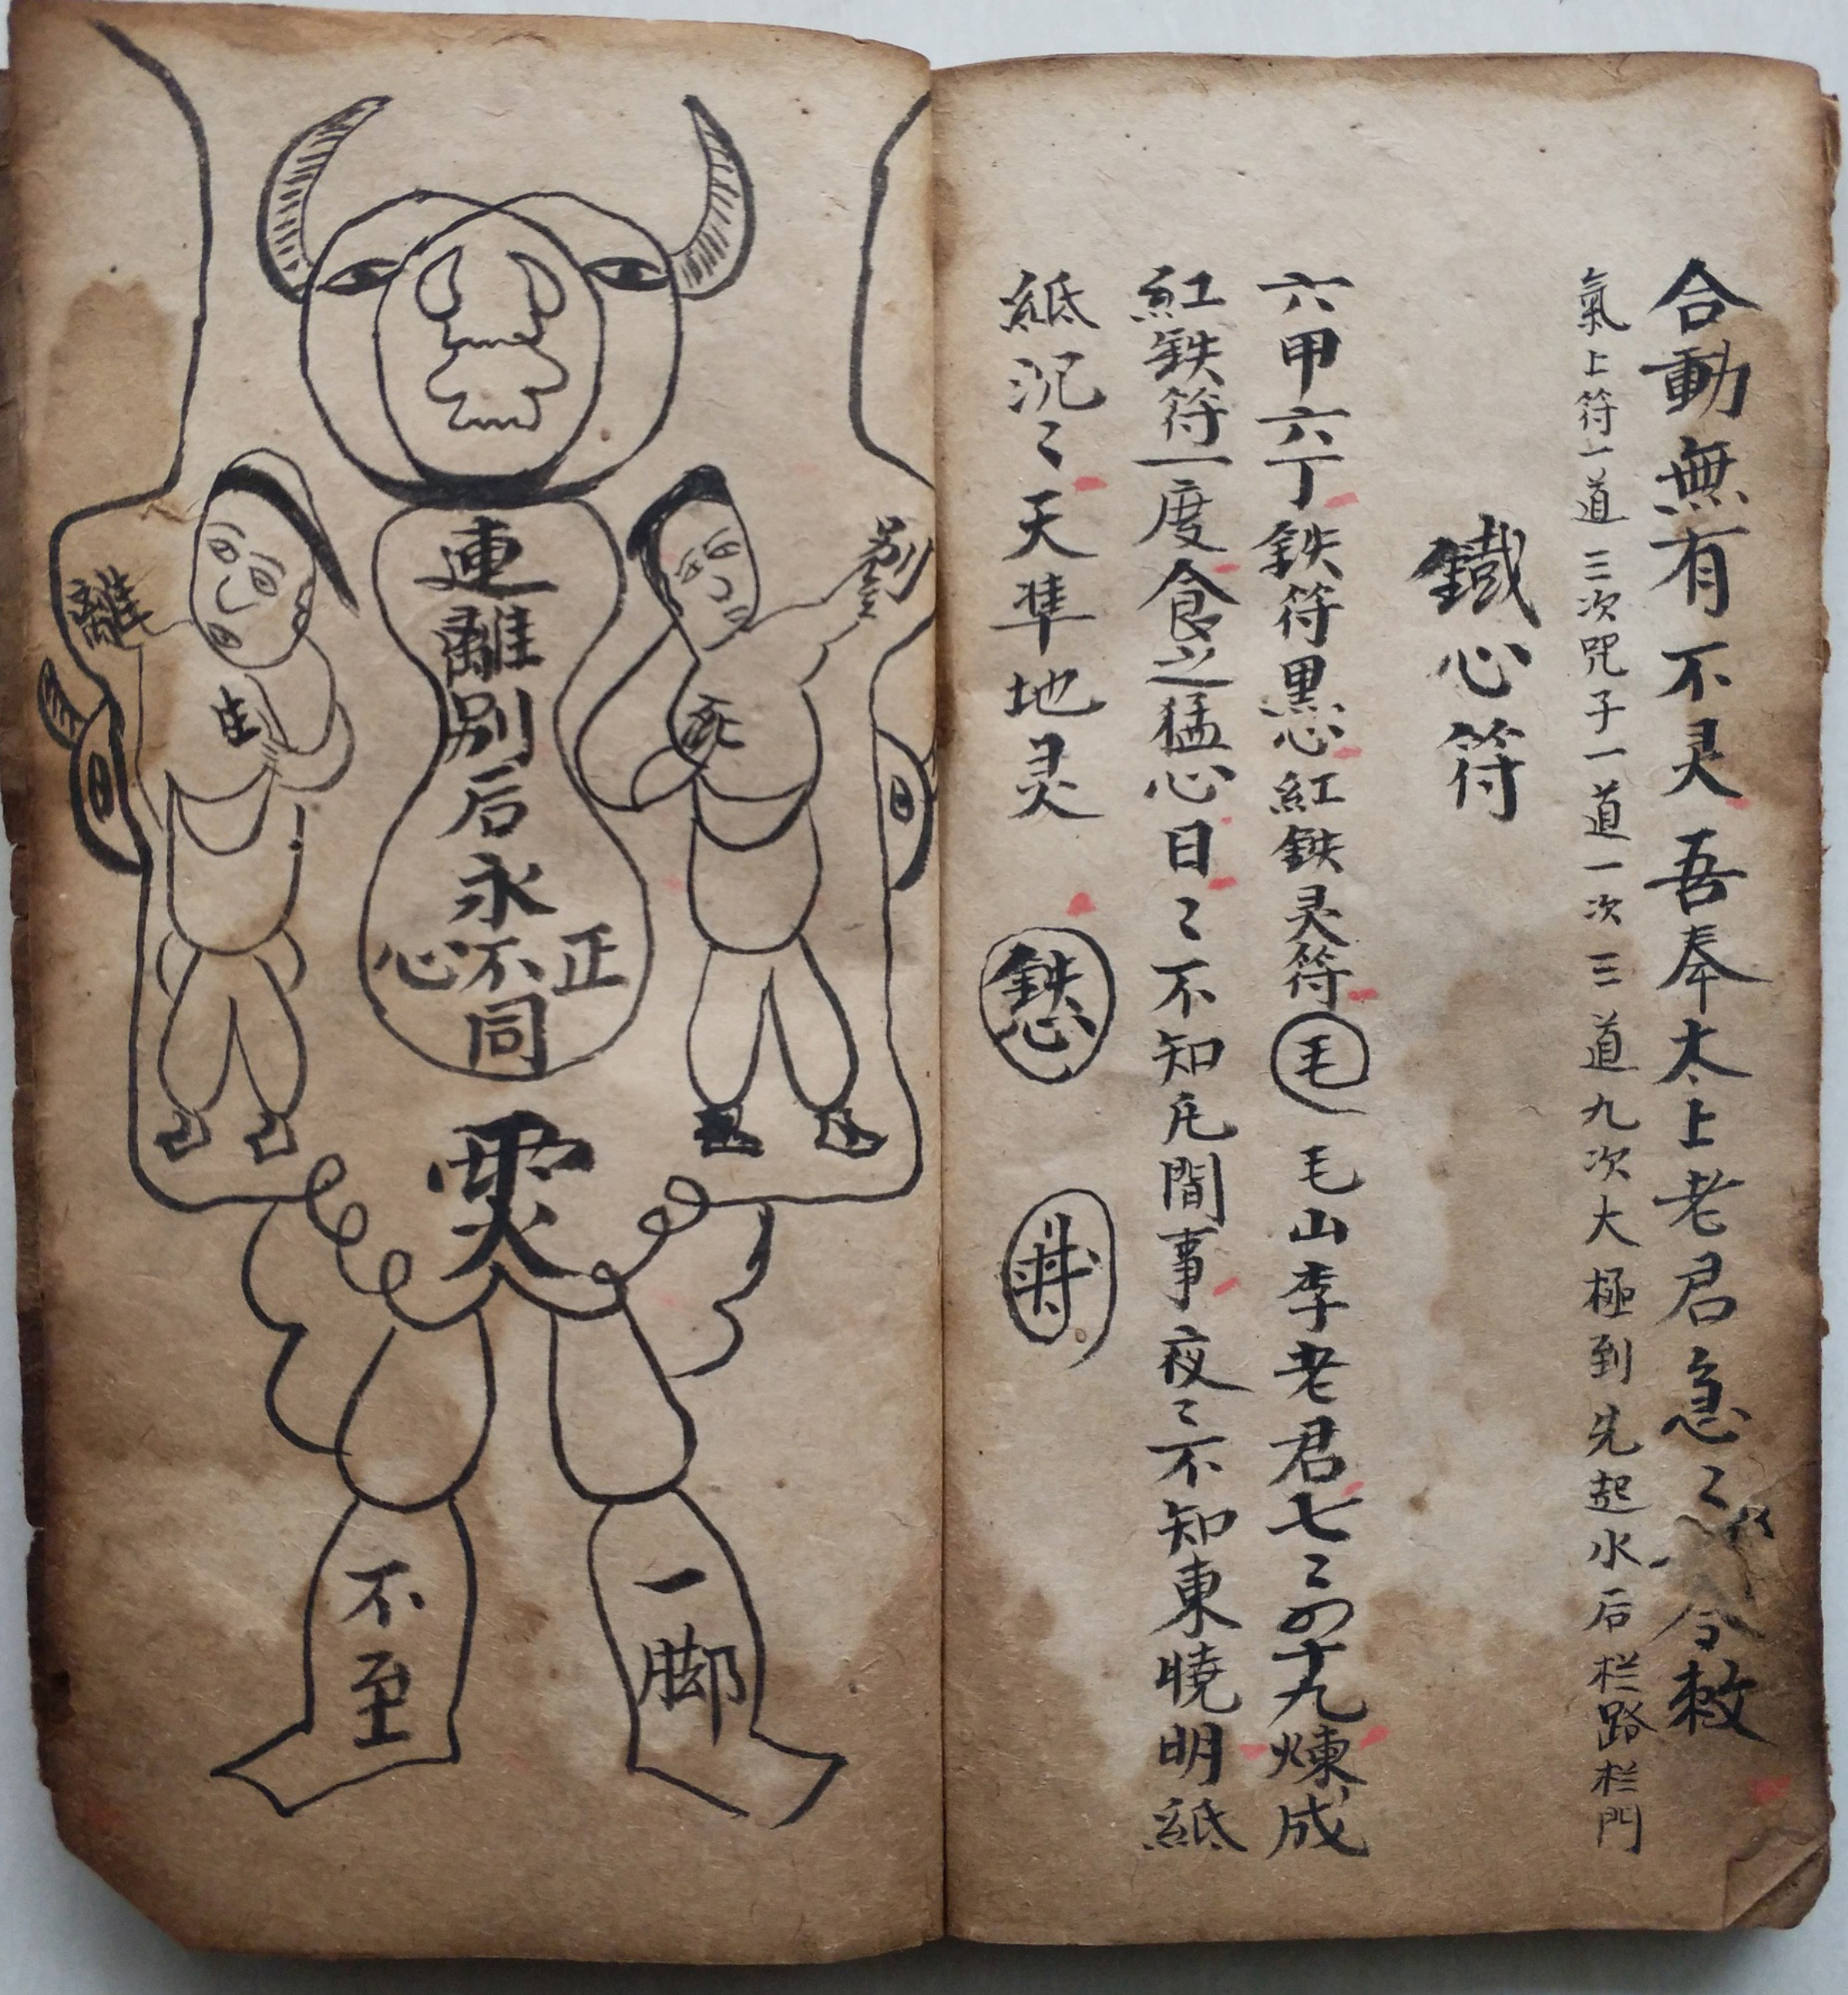 合動無有不灵吾奉太上老君急〻令敕
氣上符一道三次咒子一道一次三道九次大極到先起水后栏路栏門
鐵心符
六甲六丁鉄符黒心紅鉄灵符毛毛山李老君七〻四十九煉成
紅鉄符一度食之猛心日〻不知凡間事夜〻不知東曉明紙
紙沉〻天準地灵
鉄心
別
死
連離别后永不同
正
心
離
生
靈
一脚
不至